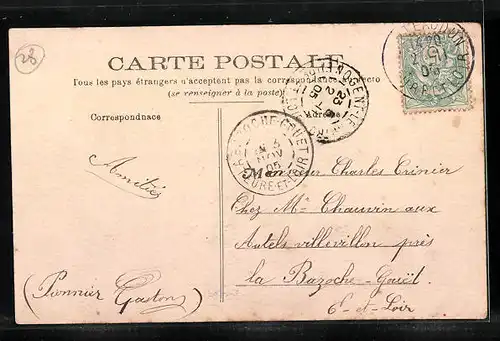 28
CARTE POSTALE
Tous les pays étrangers n'acceptent pas la correspondance au recto
(se renseigner à la poste)
Correspondnace
Adresse
NOGENT-LE-
BAZOCHE-GOUET
NOV
05
EURE-ET-LOIR
Amitiés
Monsieur Charles Crinier
Chez Mr Chauvin aux
Autels villevillon près
la Bazoche-Gouët
E-et-Loir
(Pionnier Gaston)